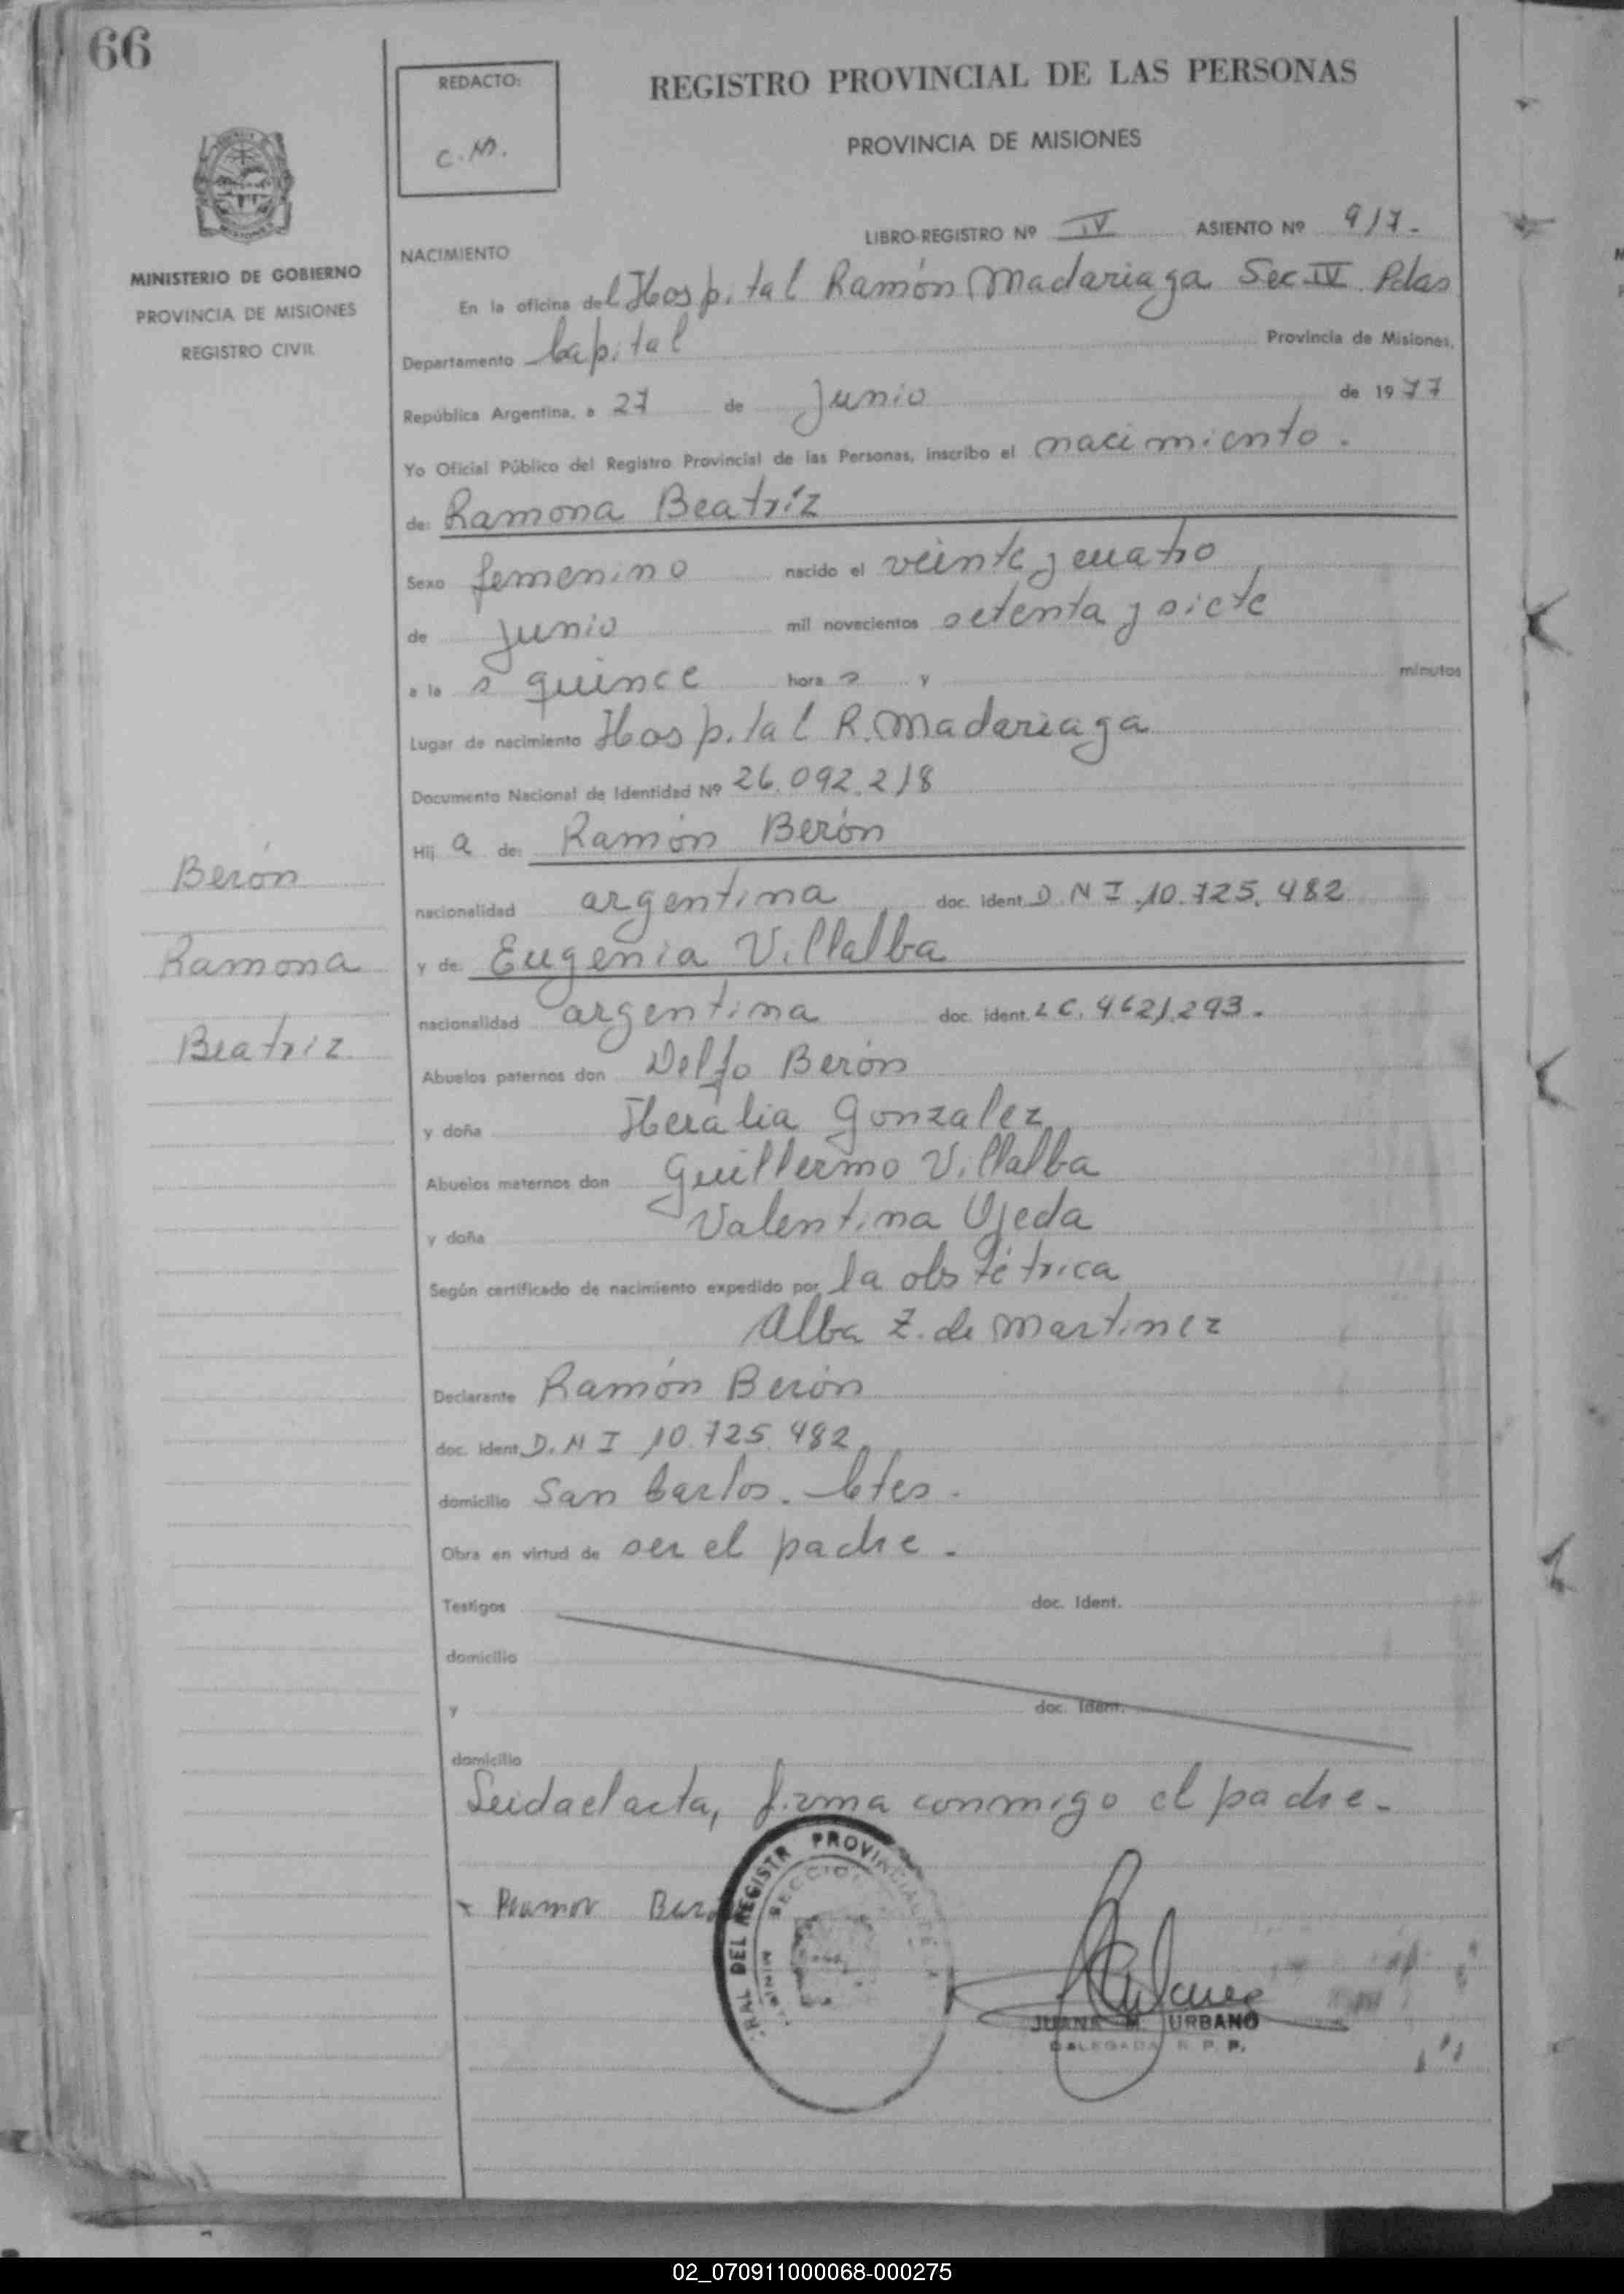 66
REDACTO:
C.M.
REGISTRO PROVINCIAL DE LAS PERSONAS
PROVINCIA DE MISIONES
MINISTERIO DE GOBIERNO
PROVINCIA DE MISIONES
REGISTRO CIVIL
LIBRO-REGISTRO Nº IV ASIENTO Nº 917.
NACIMIENTO
En la oficina del Hospital Ramón Madariaga Sec. IV Pdas
Departamento Capital Provincia de Misiones,
República Argentina, a 27 de Junio de 1977
Yo Oficial Público del Registro Provincial de las Personas, inscribo el nacimiento.
de: Ramona Beatríz
Sexo femenino nacido el veinte y cuatro
de Junio mil novecientos setenta y siete
a la s quince hora s y minutos
Lugar de nacimiento Hospital R. Madariaga
Documento Nacional de Identidad Nº 26.092.218
Hij a de: Ramón Berón
nacionalidad argentina doc. Ident. D.N I .10.725.482
y de Eugenia Villalba
nacionalidad argentina doc. ident. L C. 4621.293.
Berón
Ramona
Beatriz
Abuelos paternos don Delfo Berón
y doña Gonzalez
Abuelos maternos don Guillermo Villalba
y doña Valentina Ojeda
Según certificado de nacimiento expedido por la obstétrica
Alba Z. de Martinez
Declarante Ramón Berón
doc. Ident. D.N I 10.725.482
domicilio San Carlos. Ctes.
Obra en virtud de ser el padre.
Testigos doc. Ident.
domicilio
y doc. Ident.
domicilio
Leida el acta, firma conmigo el padre.
Ramon
RAL DEL REGISTR PROVINCIAL DE
SECCIO
MINI
JUANA M. URBANO
DELEGADA R. P. P.
02_070911000068-000275